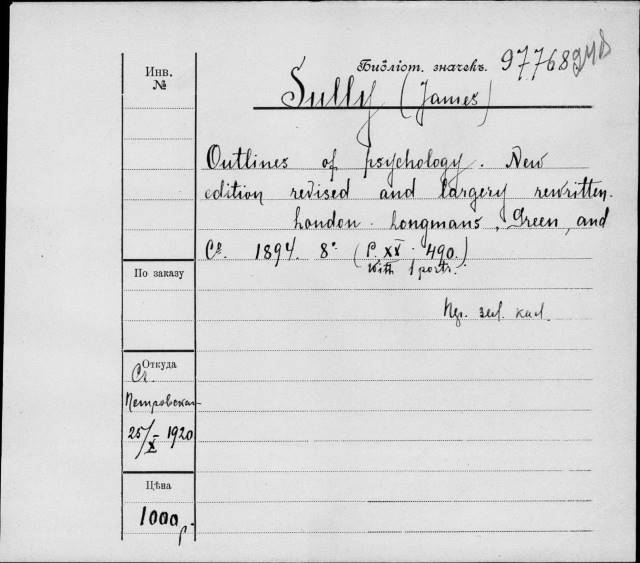 Инв.
№
Библіот. значекъ. 97768
Sully (James)
Outlines of psychology. New
edition revised and largery rewritten.
London. Longmans, Green, and
Cº. 1894. 8º (P. XV. 490.)
with 1 portr.
По заказу
зел. кал.
Откуда
Ст.
Петровская
25/X 1920
Цѣна
1000 р.